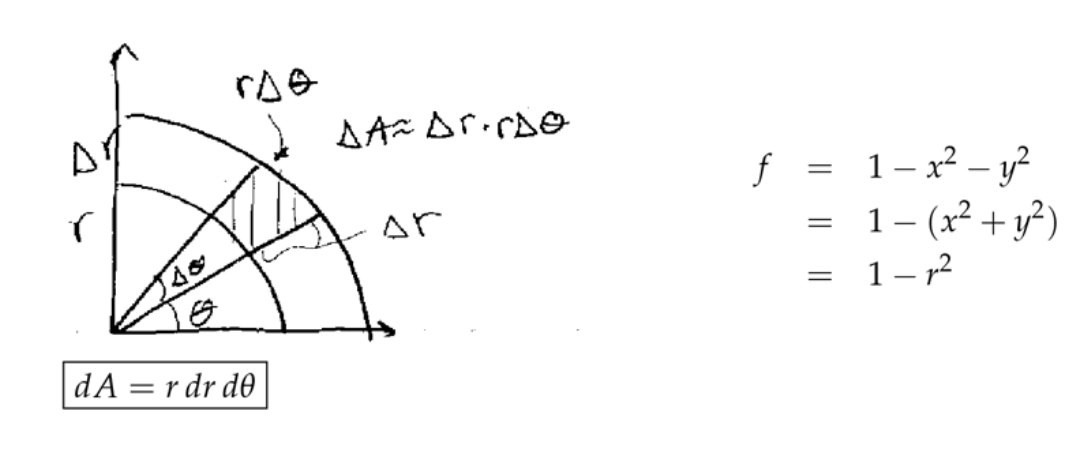 rΔθ
ΔA≈ Δr·rΔθ
Δr
r
Δr
Δθ
θ
dA = r dr dθ
f = 1 − x² − y²
= 1 − (x² + y²)
= 1 − r²